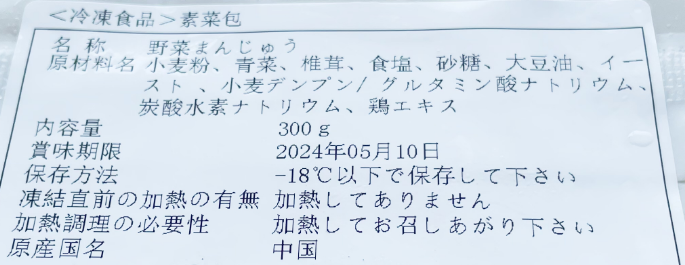 ＜冷凍食品＞素菜包
名 称 野菜まんじゅう
原材料名 小麦粉、青菜、椎茸、食塩、砂糖、大豆油、イー
スト 、小麦デンプン/ グルタミン酸ナトリウム、
炭酸水素ナトリウム、鶏エキス
内容量 300ｇ
賞味期限 2024年05月10日
保存方法 -18℃以下で保存して下さい
凍結直前の加熱の有無 加熱してありません
加熱調理の必要性 加熱してお召しあがり下さい
原産国名 中国